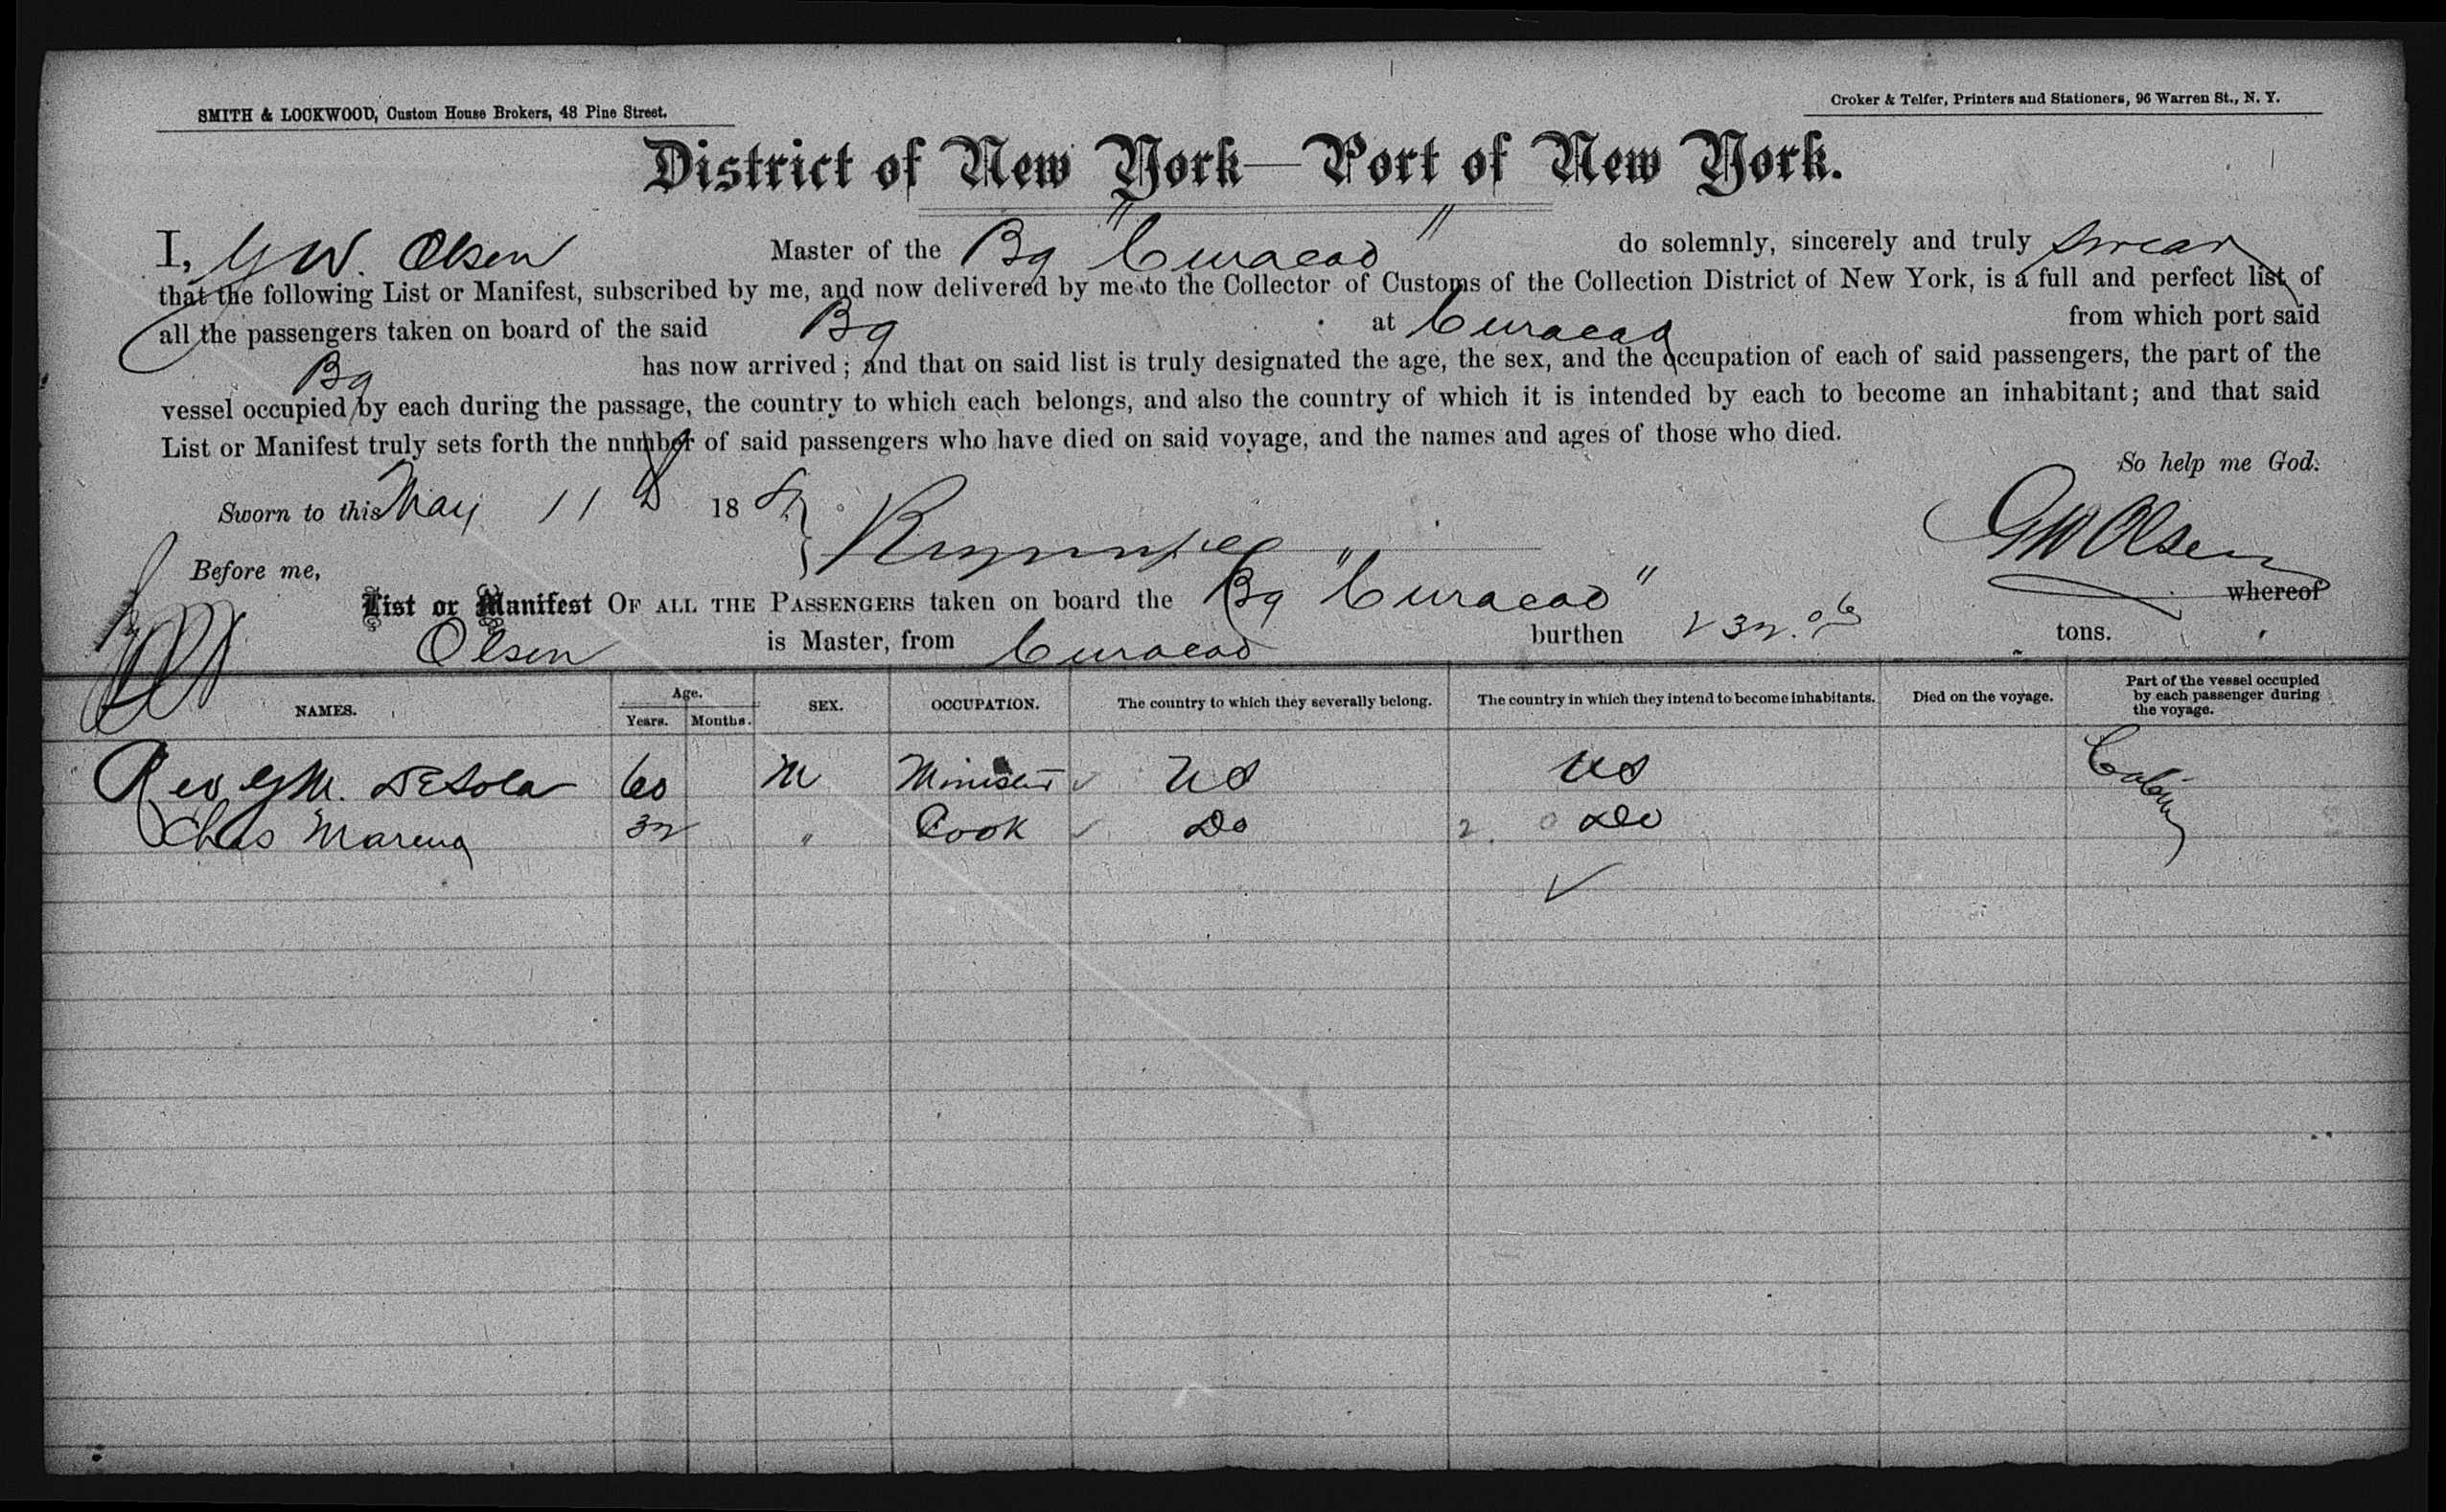 SMITH & LOCKWOOD, Custom House Brokers, 48 Pine Street.
Croker & Telfer, Printers and Stationers, 96 Warren St., N. Y.
District of New York—Port of New York.
I, G W. Olsen Master of the Bg "Curacao" do solemnly, sincerely and truly swear
that the following List or Manifest, subscribed by me, and now delivered by me to the Collector of Customs of the Collection District of New York, is a full and perfect list of
all the passengers taken on board of the said Bg at Curacao from which port said
Bg has now arrived; and that on said list is truly designated the age, the sex, and the occupation of each of said passengers, the part of the
vessel occupied by each during the passage, the country to which each belongs, and also the country of which it is intended by each to become an inhabitant; and that said
List or Manifest truly sets forth the number of said passengers who have died on said voyage, and the names and ages of those who died.
So help me God.
Sworn to this May 11 18
G W Olsen
Before me,
List or Manifest OF ALL THE PASSENGERS taken on board the Bg "Curacao" whereof
Olsen is Master, from Curacao burthen tons.
NAMES. Age. Years. Months. SEX. OCCUPATION. The country to which they severally belong. The country in which they intend to become inhabitants. Died on the voyage. Part of the vessel occupied by each passenger during the voyage.
Rev G M. DeSola 60 M Minister US US Cabin
Chas Marena 32 " Cook Do 2. Do